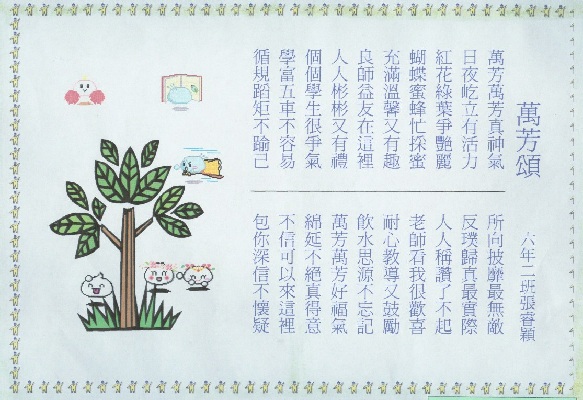 萬芳頌
六年二班張睿穎
萬芳萬芳真神氣
日夜屹立有活力
紅花綠葉爭艷麗
蝴蝶蜜蜂忙採蜜
充滿溫馨又有趣
良師益友在這裡
人人彬彬又有禮
個個學生很爭氣
學富五車不容易
循規蹈矩不踰己
所向披靡最無敵
反璞歸真最實際
人人稱讚了不起
老師看我很歡喜
耐心教導又鼓勵
飲水思源不忘記
萬芳萬芳好福氣
綿延不絕真得意
不信可以來這裡
包你深信不懷疑